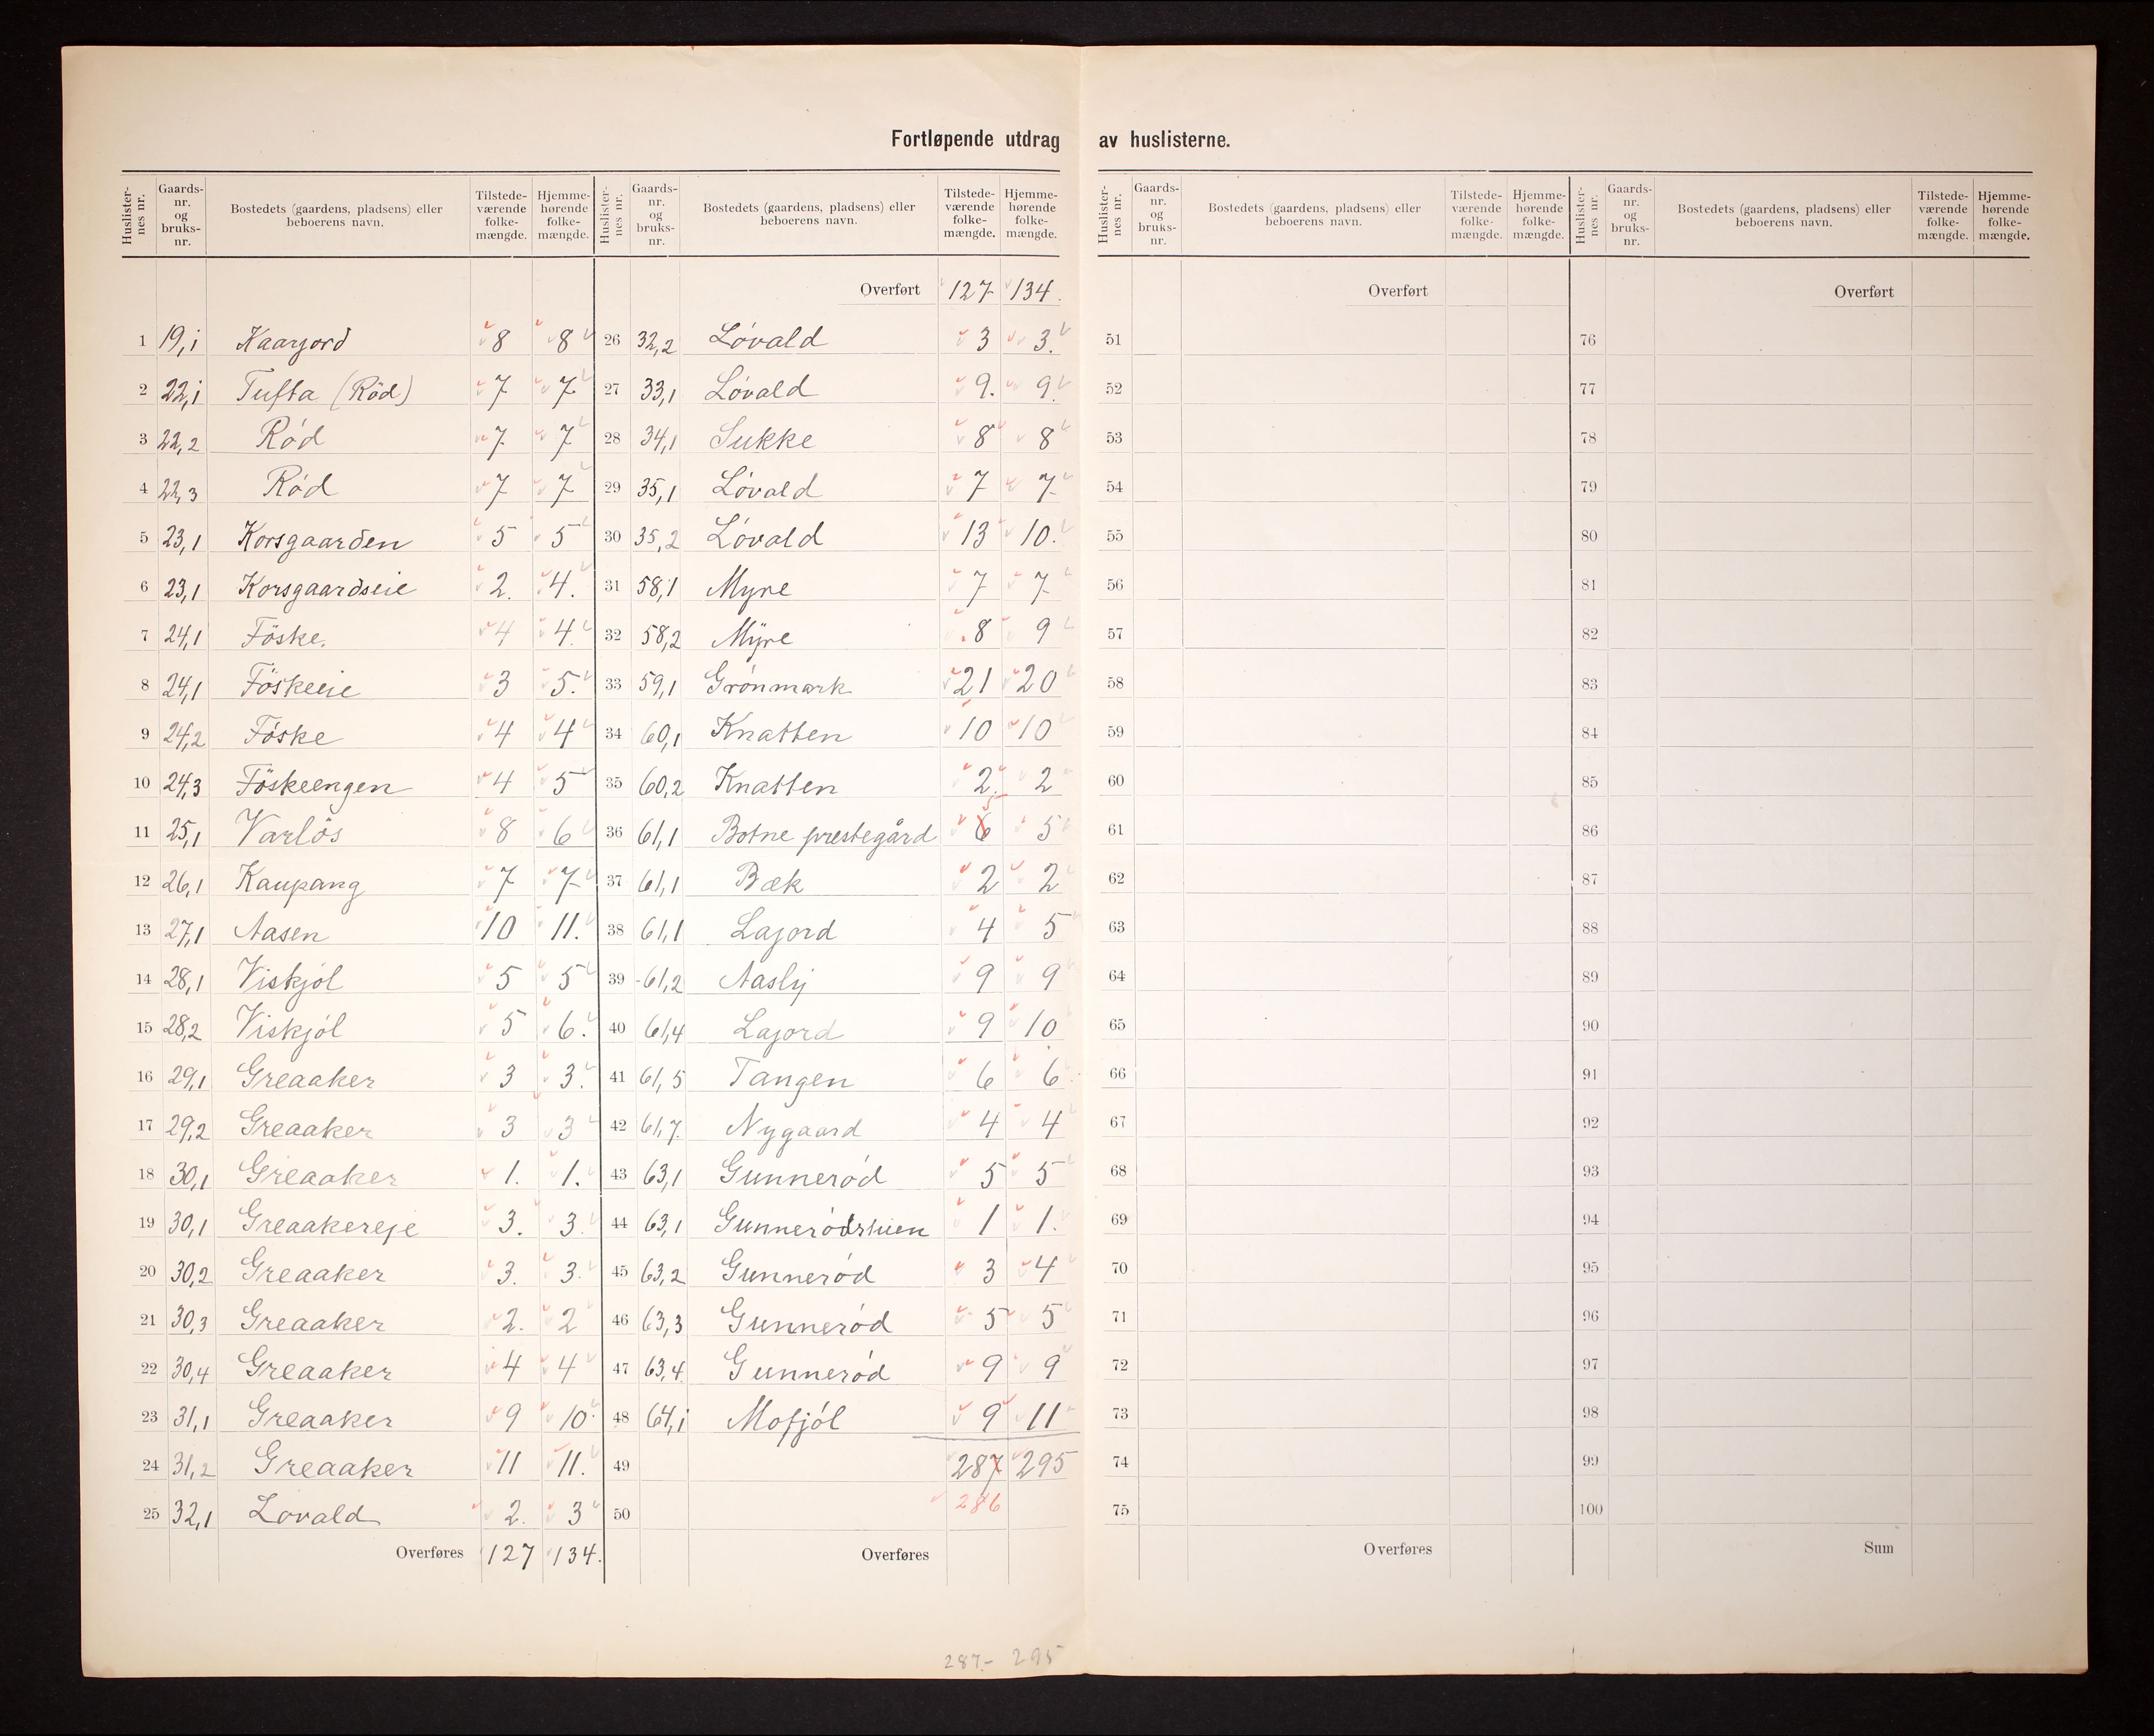 Fortløpende utdrag av huslisterne.
Huslister-nes nr. | Gaards-nr. og bruks-nr. | Bostedets (gaardens, pladsens) eller beboerens navn. | Tilstede-værende folke-mængde. | Hjemme-hørende folke-mængde.
1 19,1 Kaarjord 8 8
2 22,1 Tufta (Röd) 7 7
3 22,2 Rød 7 7
4 22,3 Rød 7 7
5 23,1 Korsgaarden 5 5
6 23,1 Korsgaardseie 2. 4.
7 24,1 Föske. 4 4.
8 24,1 Föskeeie 3 5.
9 24,2 Föske 4 4
10 24,3 Föskeengen 4 5
11 25,1 Varlös 8 6
12 26,1 Kaupang 7 7
13 27,1 Aasen 10 11.
14 28,1 Viskjøl 5 5
15 28,2 Viskjøl 5 6.
16 29,1 Greaaker 3 3.
17 29,2 Greaaker 3 3
18 30,1 Greaaker 1. 1.
19 30,1 Greaakereje 3. 3.
20 30,2 Greaaker 3. 3.
21 30,3 Greaaker 2. 2
22 30,4 Greaaker 4 4
23 31,1 Greaaker 9 10.
24 31,2 Greaaker 11 11.
25 32,1 Løvald 2. 3
Overføres 127 134.
Huslister-nes nr. | Gaards-nr. og bruks-nr. | Bostedets (gaardens, pladsens) eller beboerens navn. | Tilstede-værende folke-mængde. | Hjemme-hørende folke-mængde.
Overført 127 134.
26 32,2 Løvald 3 3.
27 33,1 Løvald 9. 9.
28 34,1 Sukke 8 8
29 35,1 Løvald 7 7
30 35,2 Løvald 13 10.
31 58,1 Myre 7 7
32 58,2 Myre 8 9
33 59,1 Grønmark 21 20
34 60,1 Knatten 10 10
35 60,2 Knatten 2. 2
36 61,1 Botne prestegård 6 5 5
37 61,1 Bæk 2 2
38 61,1 Lajord 4 5
39 61,2 Aasly 9 9
40 61,4 Lajord 9 10
41 61,5 Tangen 6 6
42 61,7. Nygaard 4 4
43 63,1 Gunnerød 5 5
44 63,1 Gunnerødstuen 1 1.
45 63,2 Gunnerød 3 4
46 63,3 Gunnerød 5 5
47 63,4 Gunnerød 9 9
48 64,1 Mofjøl 9 11
49 287 295
50 286
Overføres
287.- 295
Huslister-nes nr. | Gaards-nr. og bruks-nr. | Bostedets (gaardens, pladsens) eller beboerens navn. | Tilstede-værende folke-mængde. | Hjemme-hørende folke-mængde.
Overført
51
52
53
54
55
56
57
58
59
60
61
62
63
64
65
66
67
68
69
70
71
72
73
74
75
Overføres
Huslister-nes nr. | Gaards-nr. og bruks-nr. | Bostedets (gaardens, pladsens) eller beboerens navn. | Tilstede-værende folke-mængde. | Hjemme-hørende folke-mængde.
Overført
76
77
78
79
80
81
82
83
84
85
86
87
88
89
90
91
92
93
94
95
96
97
98
99
100
Sum